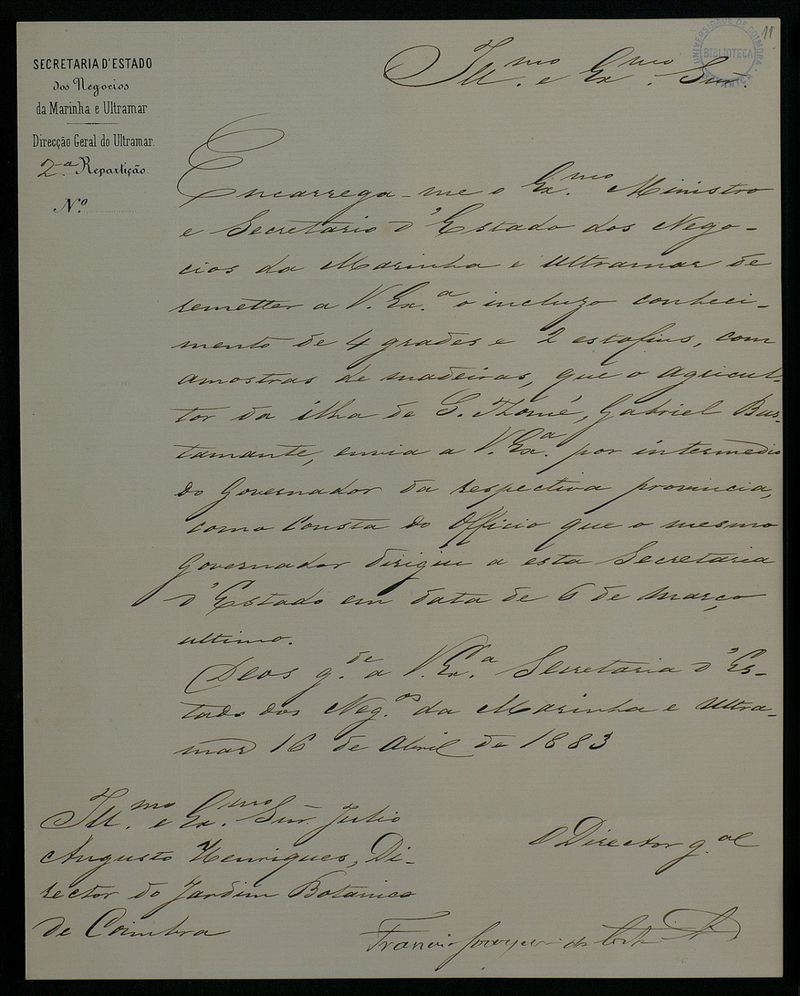 SECRETARIA D'ESTADO
dos Negocios
da Marinha e Ultramar
Direcção Geral do Ultramar.
2.ª Repartição.
N.º
UNIVERSIDADE DE COIMBRA
BIBLIOTECA
BOTANICA
11
Ill.mo e Ex.mo Snr.
Encarrega-me o Ex.mo Ministro
e Secretario d'Estado dos Nego-
cios da Marinha e Ultramar de
remetter a V. Ex.ª o incluzo conheci-
mento de 4 grades e 2 estofins, com
amostras de madeiras, que o agricul-
tor da ilha de S. Thomé, Gabriel Bus-
tamante, envia a V. Ex.ª por intermedio
do Governador da respectiva provincia,
como consta do Officio que o mesmo
Governador dirigiu a esta Secretaria
d'Estado em data de 6 de março
ultimo.
Deos g.de a V. Ex.ª Secretaria d'Es-
tado dos Neg.os da Marinha e Ultra-
mar 16 de Abril de 1883
Ill.mo e Ex.mo Snr. Julio
Augusto Henriques, Di-
rector do Jardim Botanico
de Coimbra
O Director g.al
Francisco Joaquim da Costa e Silva